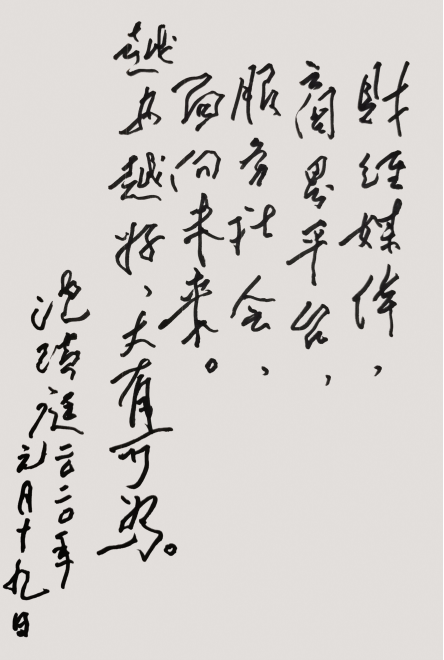 财经媒体，
商界平台，
服务社会，
面向未来。
越办越好、大有可为。
二〇二〇年
元月十九日